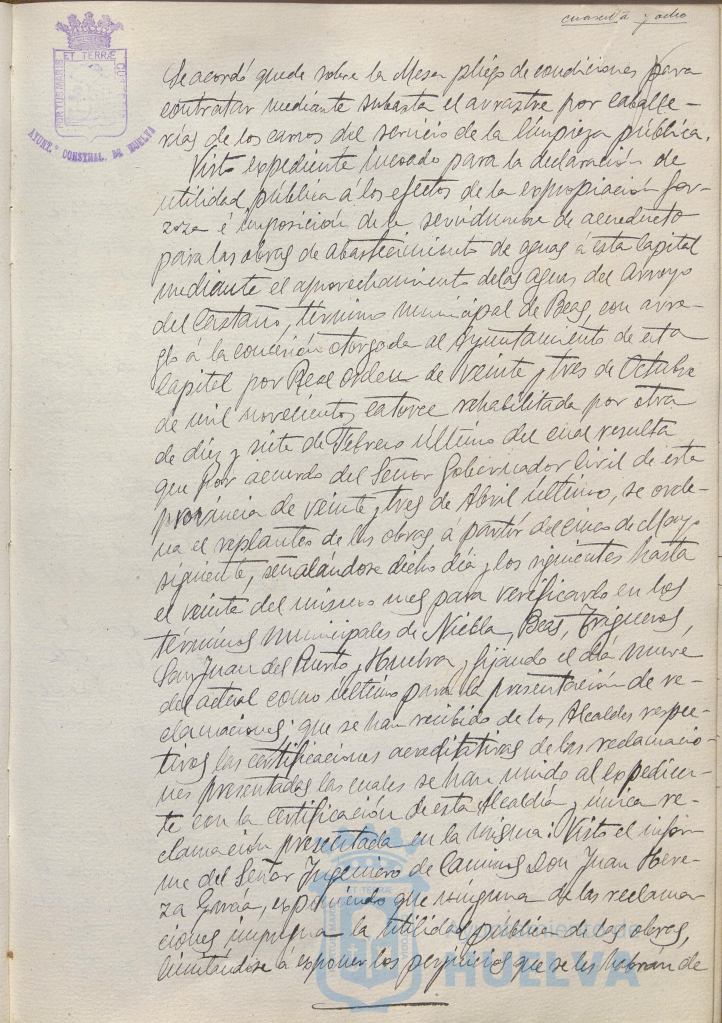 cuarenta y ocho
PORTUS MARIS ET TERRÆ CUSTODIA
AYUNT.º CONSTNAL. DE HUELVA
Se acordó quede sobre la Mesa pliego de condiciones para
contratar mediante subasta el arrastre por caballe-
rías de los carros del servicio de la limpieza pública.
Visto expediente incoado para la declaración de
utilidad pública á los efectos de la expropiación for-
zoza é imposición de la servidumbre de acueducto
para las obras de abastecimiento de aguas á esta Capital
mediante el aprovechamiento de las aguas del Arroyo
del Castaño, término municipal de Beas, con arre-
glo á la concesión otorgada al Ayuntamiento de esta
Capital por Real orden de veinte y tres de Octubre
de mil novecientos catorce rehabilitada por otra
de diez y siete de Febrero último del cual resulta
que por acuerdo del Señor Gobernador Civil de esta
provincia de veinte y tres de Abril último, se orde-
na el replanteo de las obras á partir del cinco de Mayo
siguiente, señalándose dicho día y los siguientes hasta
el veinte del mismo mes para verificarlo en los
términos municipales de Niebla, Beas, Trigueros,
San Juan del Puerto y Huelva y fijando el día nueve
del actual como último para la presentación de re-
clamaciones; que se han recibido de los Alcaldes respec-
tivos las certificaciones acreditativas de las reclamacio-
nes presentadas las cuales se han unido al expedien-
te con la certificación de esta Alcaldía y única re-
clamación presentada en la misma: Visto el infor-
me del Señor Ingeniero de Caminos Don Juan Here-
za García, exponiendo que ninguna de las reclama-
ciones impugna la utilidad pública de las obras,
limitándose á exponer los perjuicios que se les habran de
HUELVA